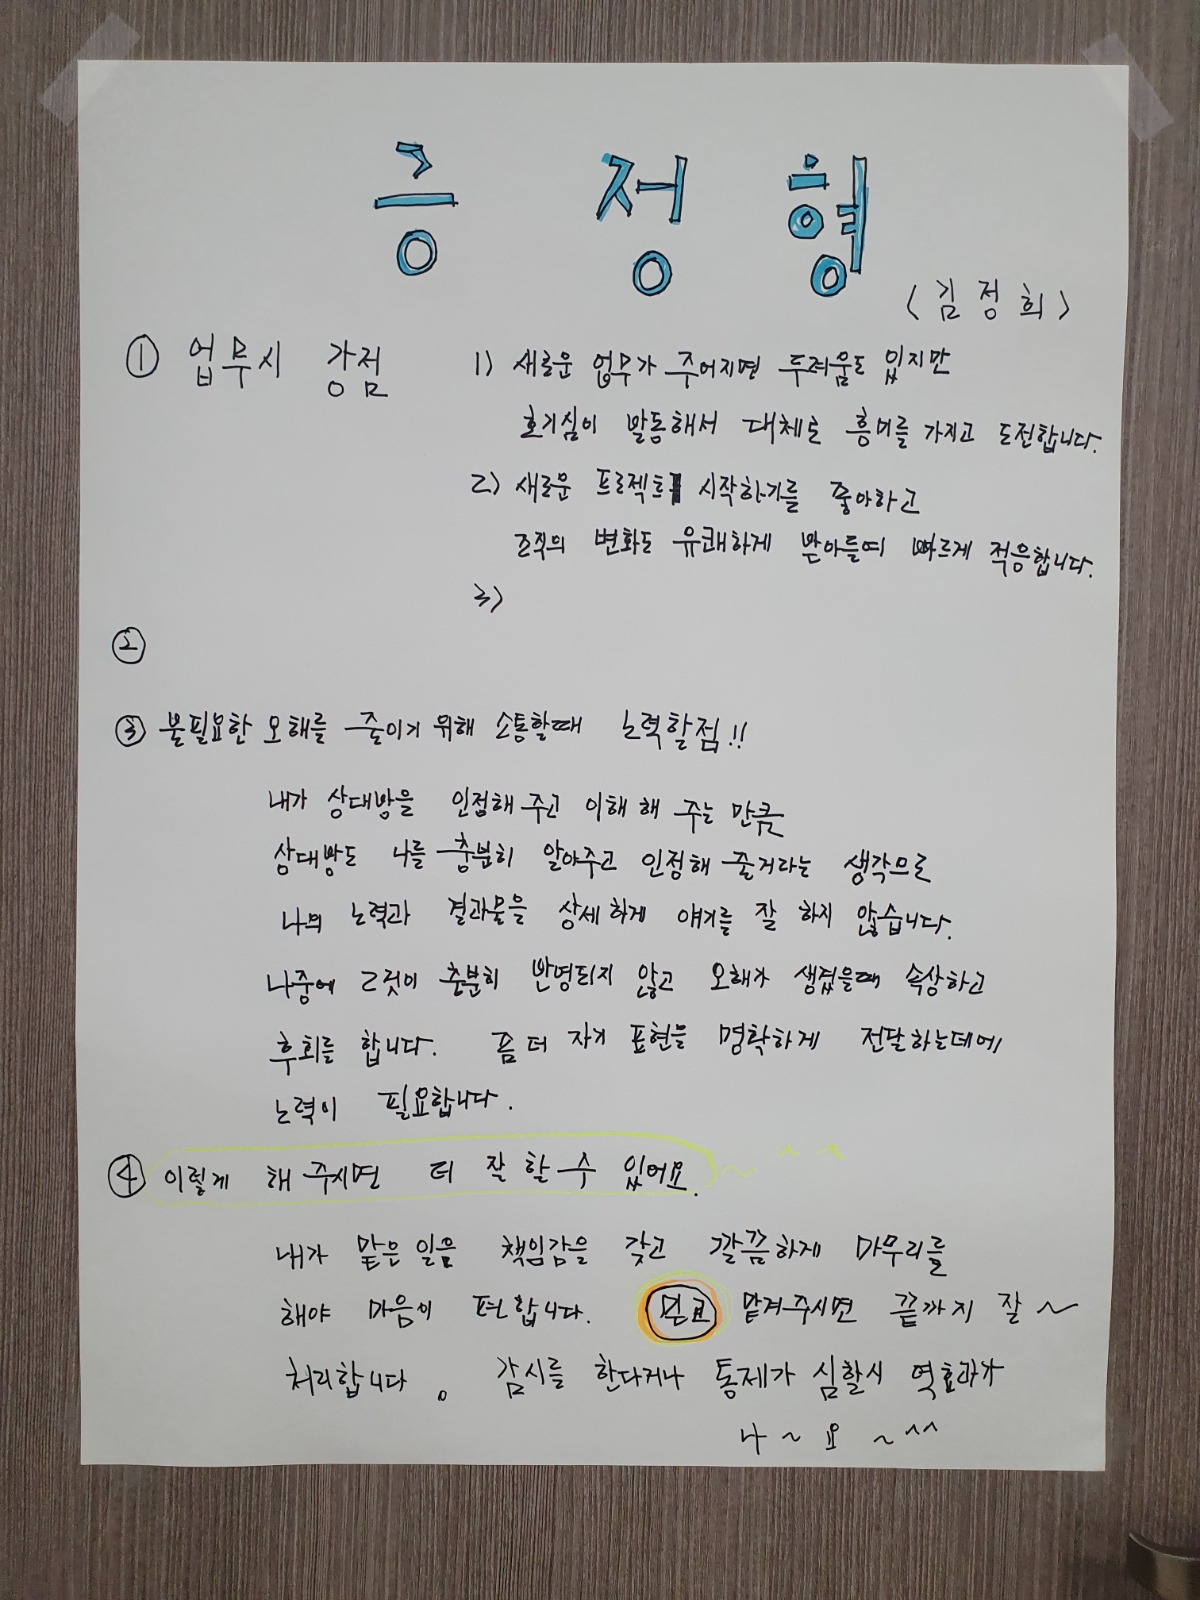 증정형
<김정희>
① 업무시 강점
1) 새로운 업무가 주어지면 두려움도 있지만
호기심이 발동해서 대체로 흥미를 가지고 도전합니다.
2) 새로운 프로젝트 시작하기를 좋아하고
조직의 변화도 유쾌하게 받아들여 빠르게 적응합니다.
3)
②
③ 불필요한 오해를 줄이기 위해 소통할때 노력할점!!
내가 상대방을 인정해 주고 이해 해 주는 만큼
상대방도 나를 충분히 알아주고 인정해 줄거라는 생각므로
나의 노력과 결과물을 상세하게 얘기를 잘 하지 않습니다.
나중에 그것이 충분히 반영되지 않고 오해가 생겼을때 속상하고
후회를 합니다. 좀 더 자기 표현을 명확하게 전달하는데에
노력이 필요합니다.
④ 이렇게 해 주시면 더 잘 할 수 있어요. ~ ^^
내가 맡은 일을 책임감을 갖고 깔끔하게 마무리를
해야 마음이 편합니다. 믿고 맡겨주시면 끝까지 잘~
처리합니다. 감시를 한다거나 통제가 심할시 역효과가
나~요~^^